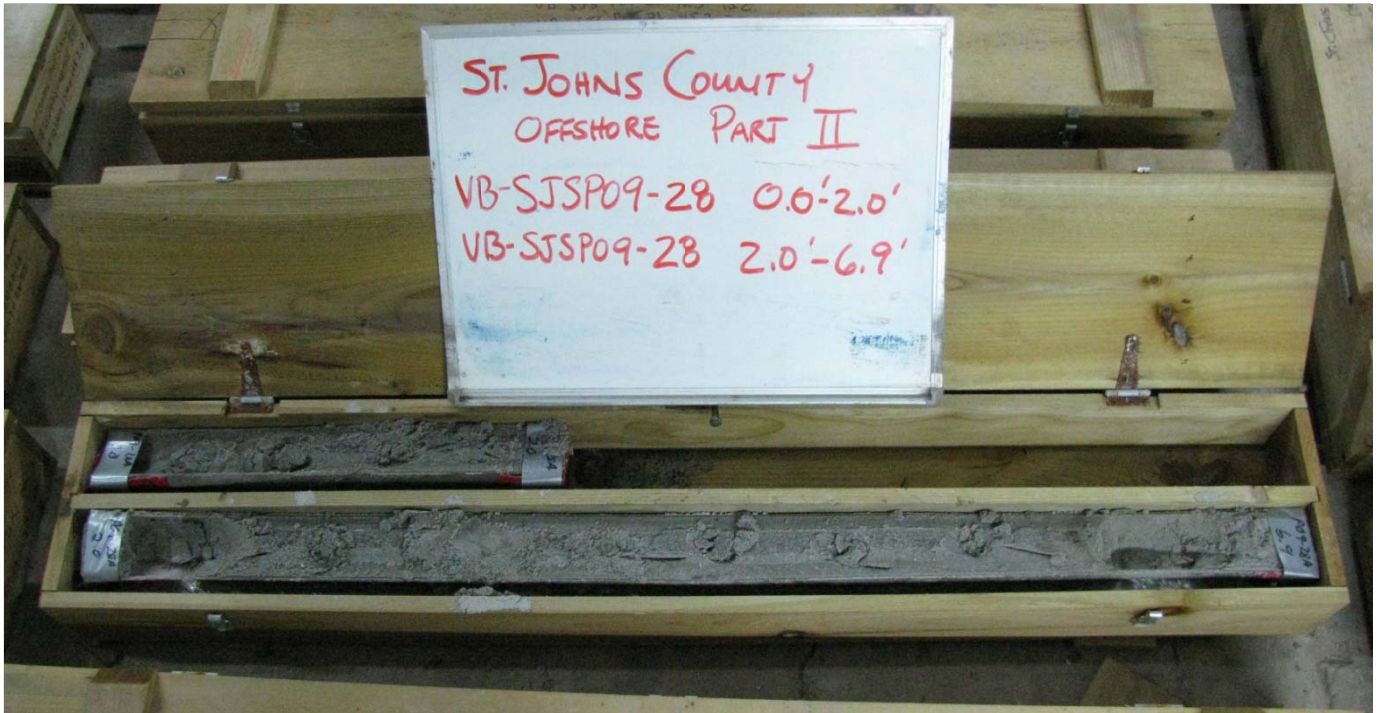 ST. JOHNS COUNTY
OFFSHORE PART II
VB-SJSP09-28 0.0'-2.0'
VB-SJSP09-28 2.0'-6.9'
2.0
2.0
P09-28A
6.9